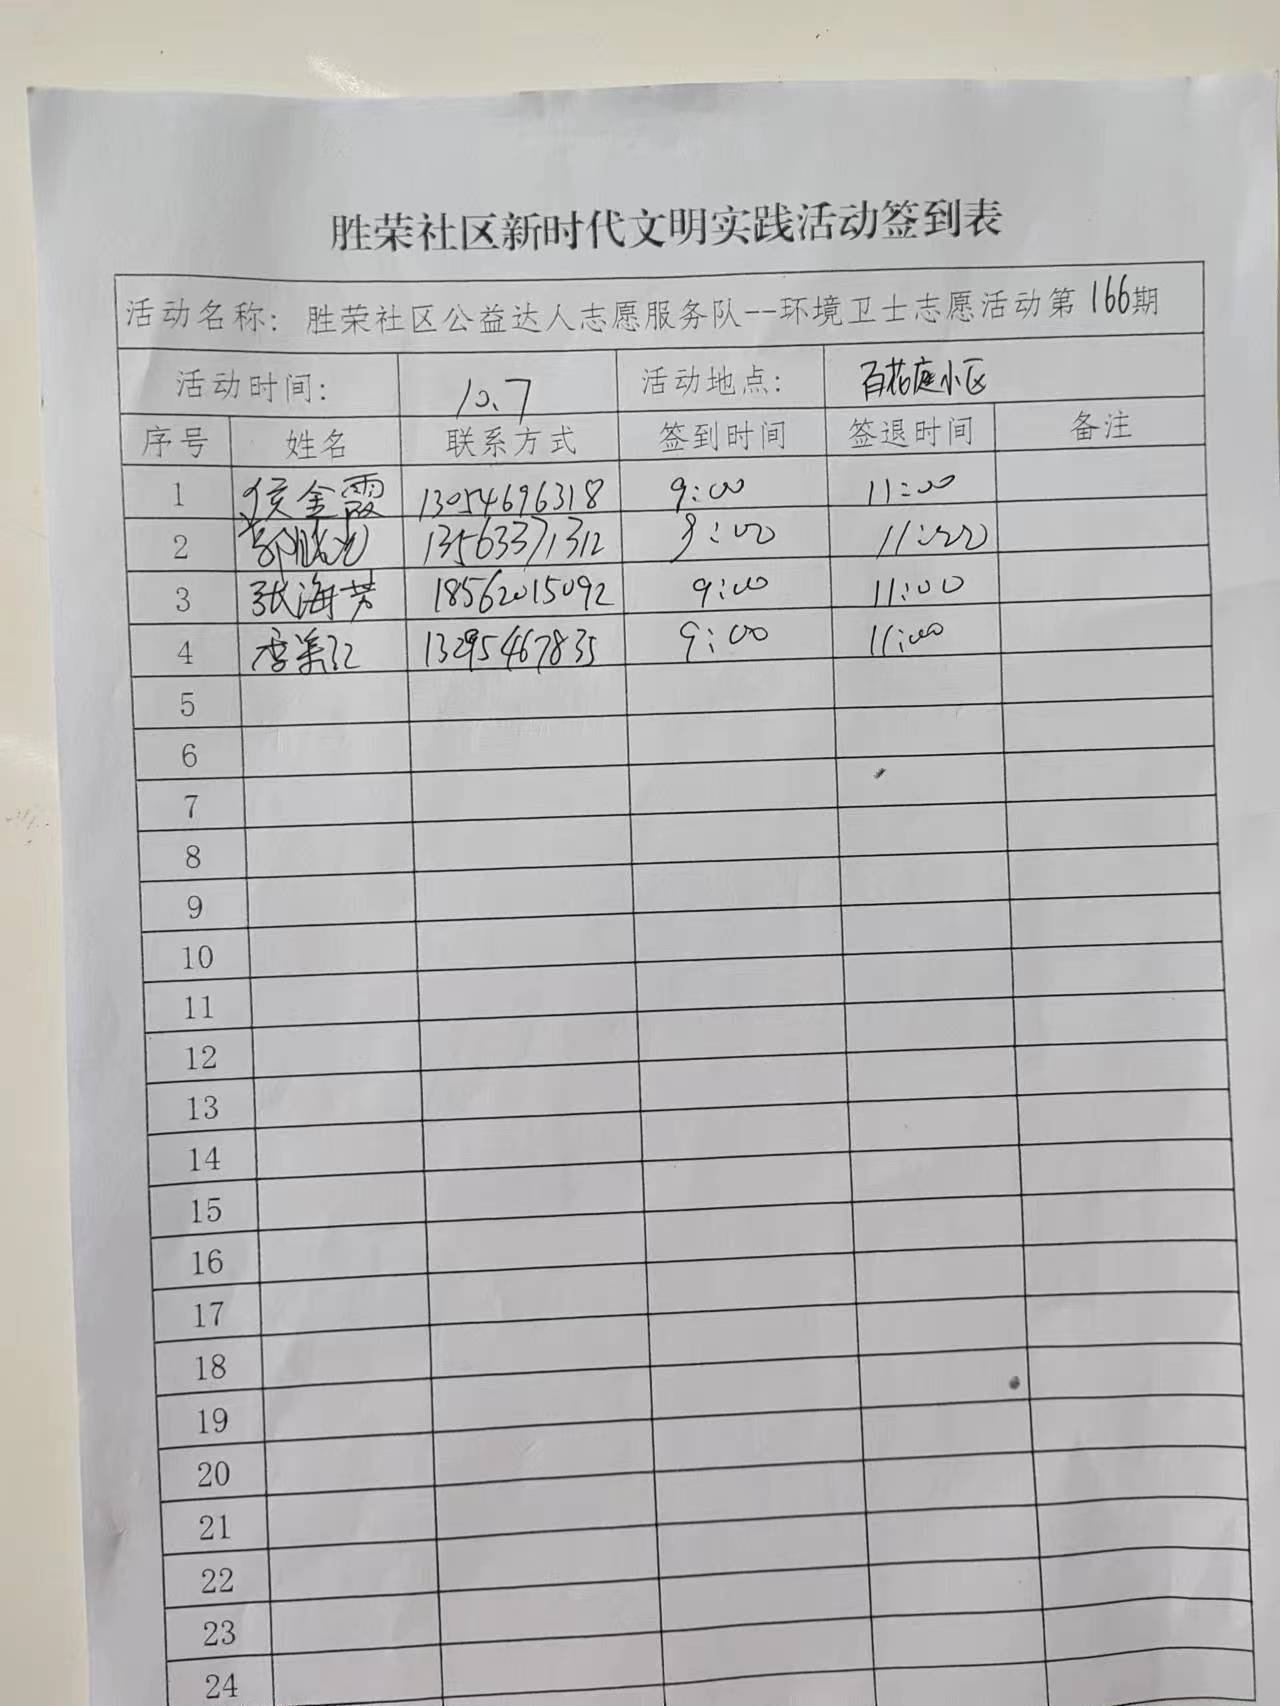 胜荣社区新时代文明实践活动签到表
活动名称：胜荣社区公益达人志愿服务队--环境卫士志愿活动第166期
活动时间： 10.7 活动地点： 百花庭小区
序号 姓名 联系方式 签到时间 签退时间 备注
1 侯金霞 13054696318 9:00 11:00
2 13563371312 9:00 11:00
3 张海芳 18562015092 9:00 11:00
4 李美江 13295467835 9:00 11:00
5
6
7
8
9
10
11
12
13
14
15
16
17
18
19
20
21
22
23
24